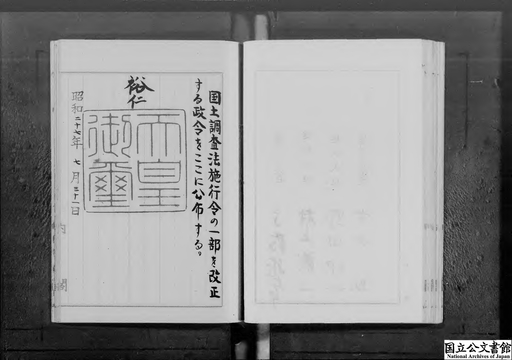 国土調査法施行令の一部を改正
する政令をここに公布する。
裕仁
天皇
御璽
昭和二十七年七月三十一日
内閣
国立公文書館
National Archives of Japan